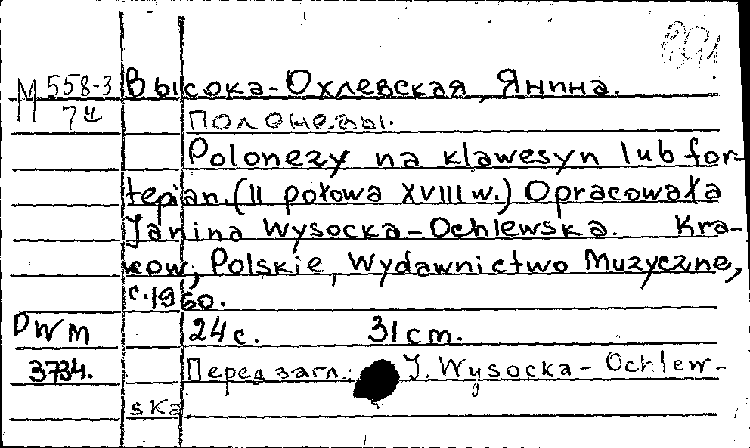 М 558-3
74
Высока-Охлевская, Янина.
Полонезы.
Polonezy na klawesyn lub for-
tepian. (II połowa XVIII w.) Opracowała
Janina Wysocka-Ochlewska. Kra-
kow, Polskie, Wydawnictwo Muzyczne,
c. 1960.
PWM
3734.
24 с. 31 cm.
Перед загл.: J. Wysocka-Ochlew-
ska